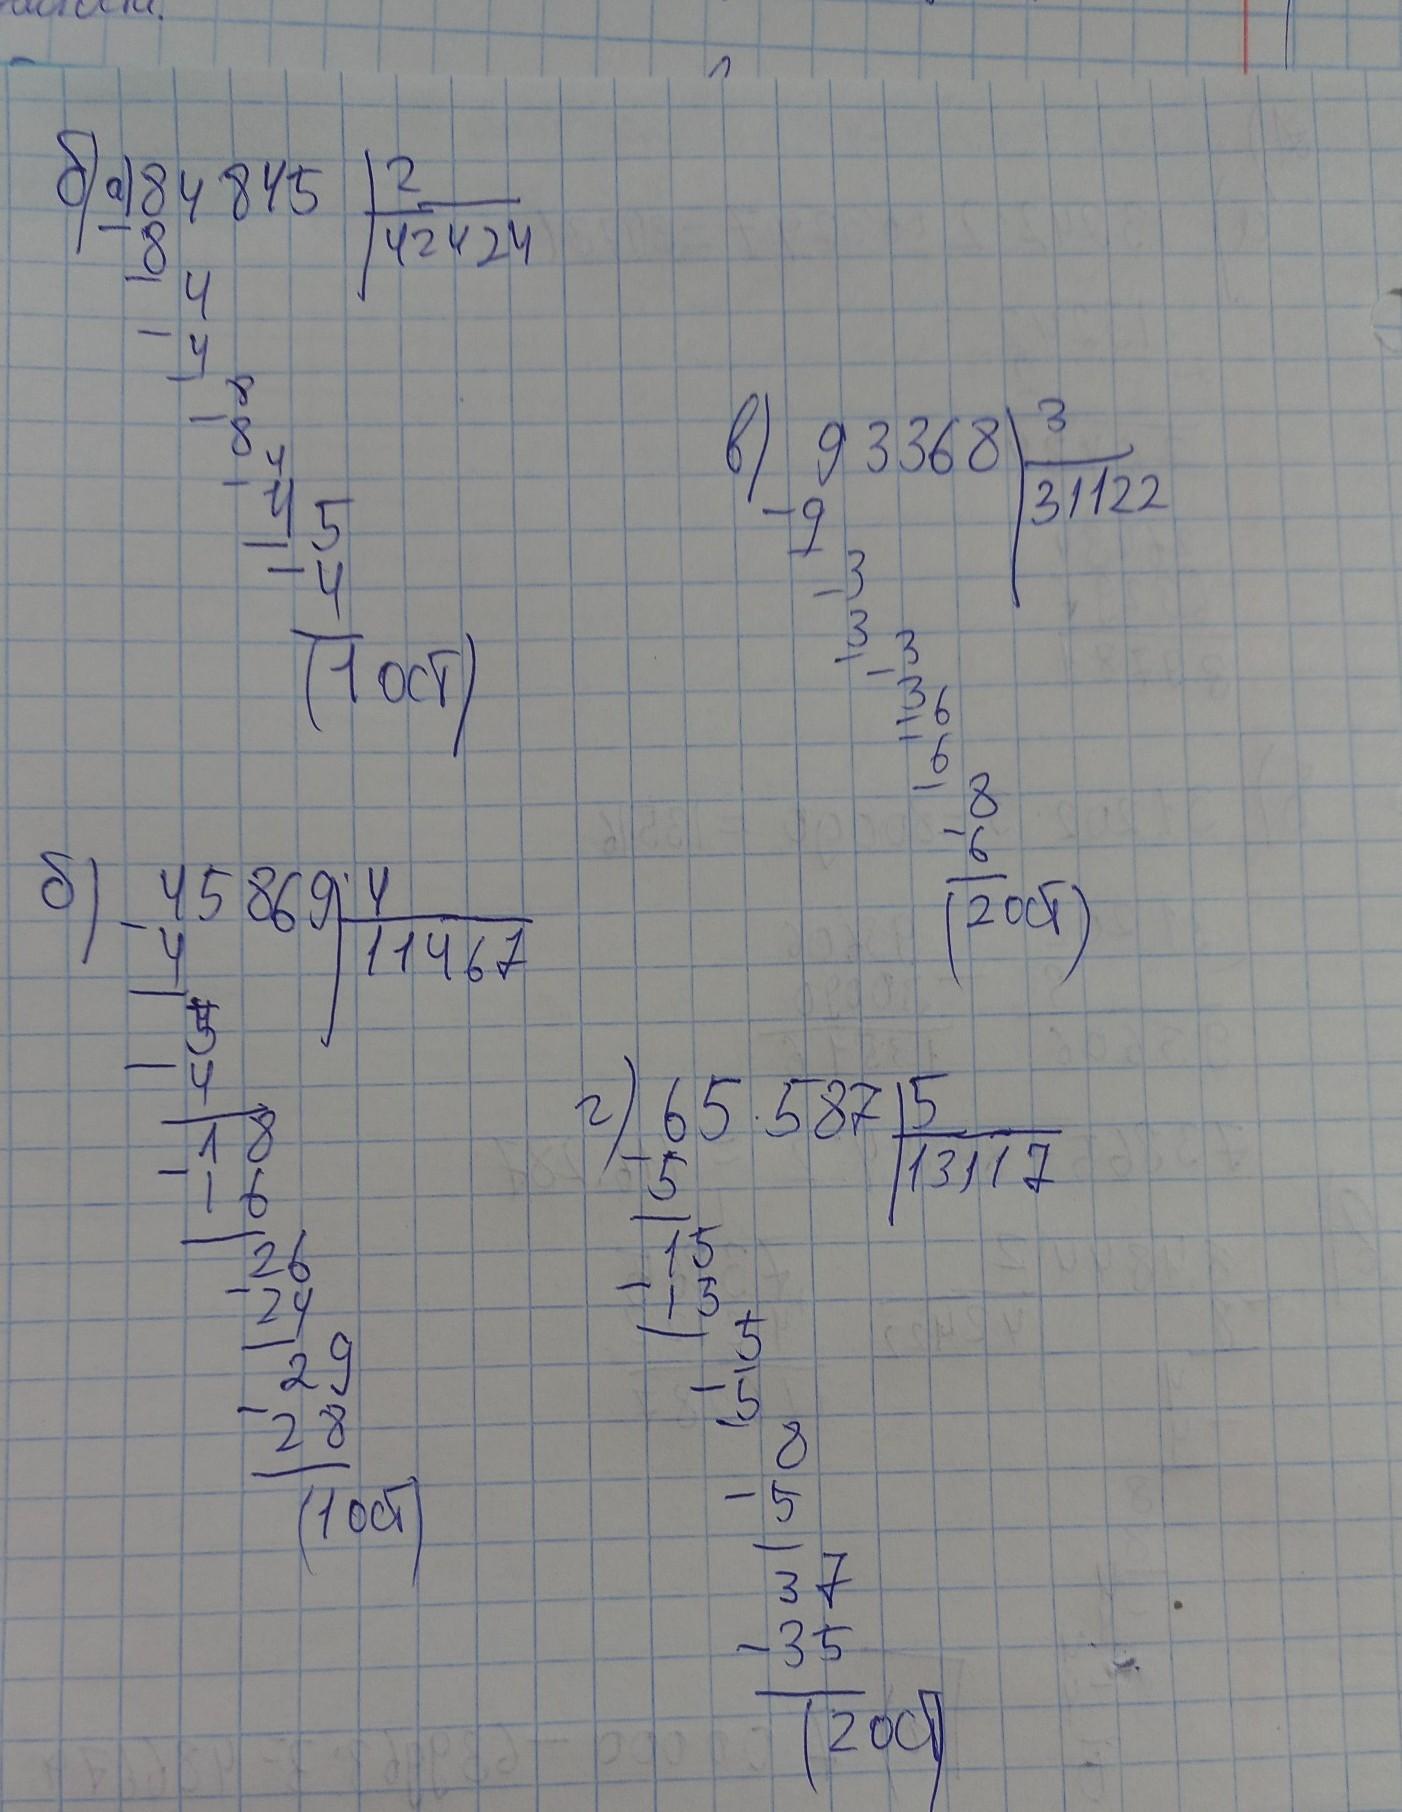 б) а) 84 845 2
- 8 42424
- 4
- 4
8
- 8
4
- 4
5
- 4
(1 ост)
в) 93368 3
- 9 31122
- 3
3
- 3
3
6
- 6
8
- 6
(2 ост)
б) 45 869 4
- 4 11467
5
- 4
18
- 16
26
- 24
29
- 28
(1 ост)
г) 65.587 5
- 5 13117
15
- 15
5
- 5
8
- 5
37
- 35
(2 ост)